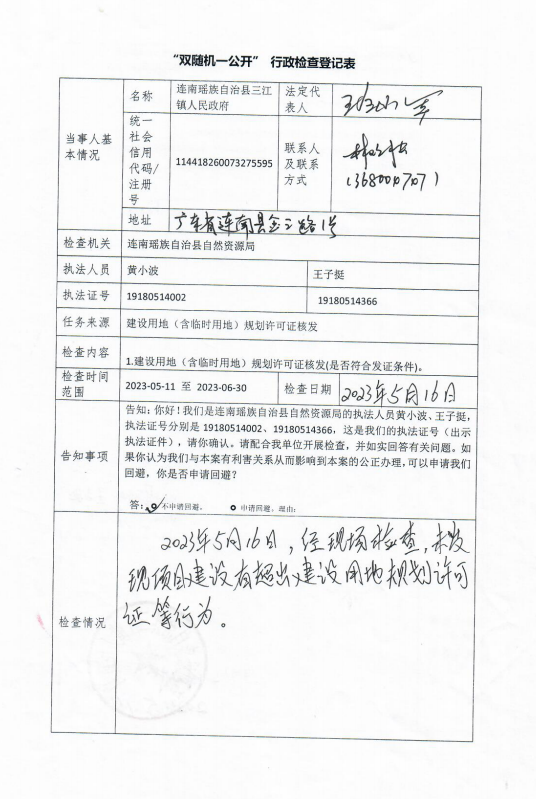 “双随机一公开” 行政检查登记表
当事人基本情况
名称
连南瑶族自治县三江
镇人民政府
法定代
表人
统一
社会
信用
代码/
注册
号
114418260073275595
联系人
及联系
方式
地址
广东省连南县金三路1号
检查机关
连南瑶族自治县自然资源局
执法人员
黄小波
王子挺
执法证号
19180514002
19180514366
任务来源
建设用地（含临时用地）规划许可证核发
检查内容
1.建设用地（含临时用地）规划许可证核发(是否符合发证条件)。
检查时间
范围
2023-05-11 至 2023-06-30
检查日期
2023年5月16日
告知事项
告知：你好！我们是连南瑶族自治县自然资源局的执法人员黄小波、王子挺，
执法证号分别是 19180514002、19180514366，这是我们的执法证号（出示
执法证件），请你确认。请配合我单位开展检查，并如实回答有关问题。如
果你认为我们与本案有利害关系从而影响到本案的公正办理，可以申请我们
回避，你是否申请回避？
答： 不申请回避。 申请回避，理由：
检查情况
2023年5月16日，经现场检查，未发
现项目建设有超出建设用地规划许可
证等行为。